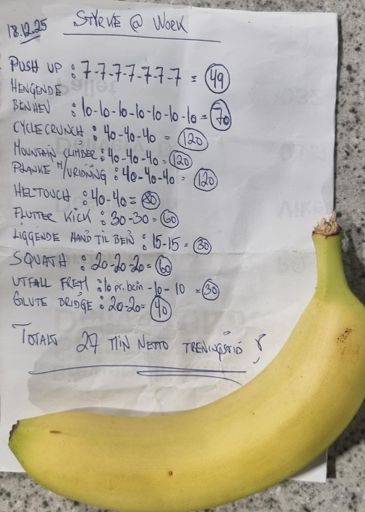 18.12.25 STYRKE @ WORK
PUSH UP : 7-7-7-7-7-7-7 = 49
HENGENDE
BENHEV : 10-10-10-10-10-10-10 = 70
CYCLECRUNCH : 40-40-40 = 120
MOUNTAIN CLIMBER : 40-40-40 = 120
PLANKE M/VRIDNING : 40-40-40 = 120
HELTOUCH : 40-40 = 80
FLUTTER KICK : 30-30 = 60
LIGGENDE HAND TIL BEIN : 15-15 = 30
SQUATH : 20-20-20 = 60
UTFALL FREM : 10 pr. bein -10 - 10 = 30
GLUTE BRIDGE : 20-20 = 40
TOTALT 27 MIN NETTO TRENINGSTID